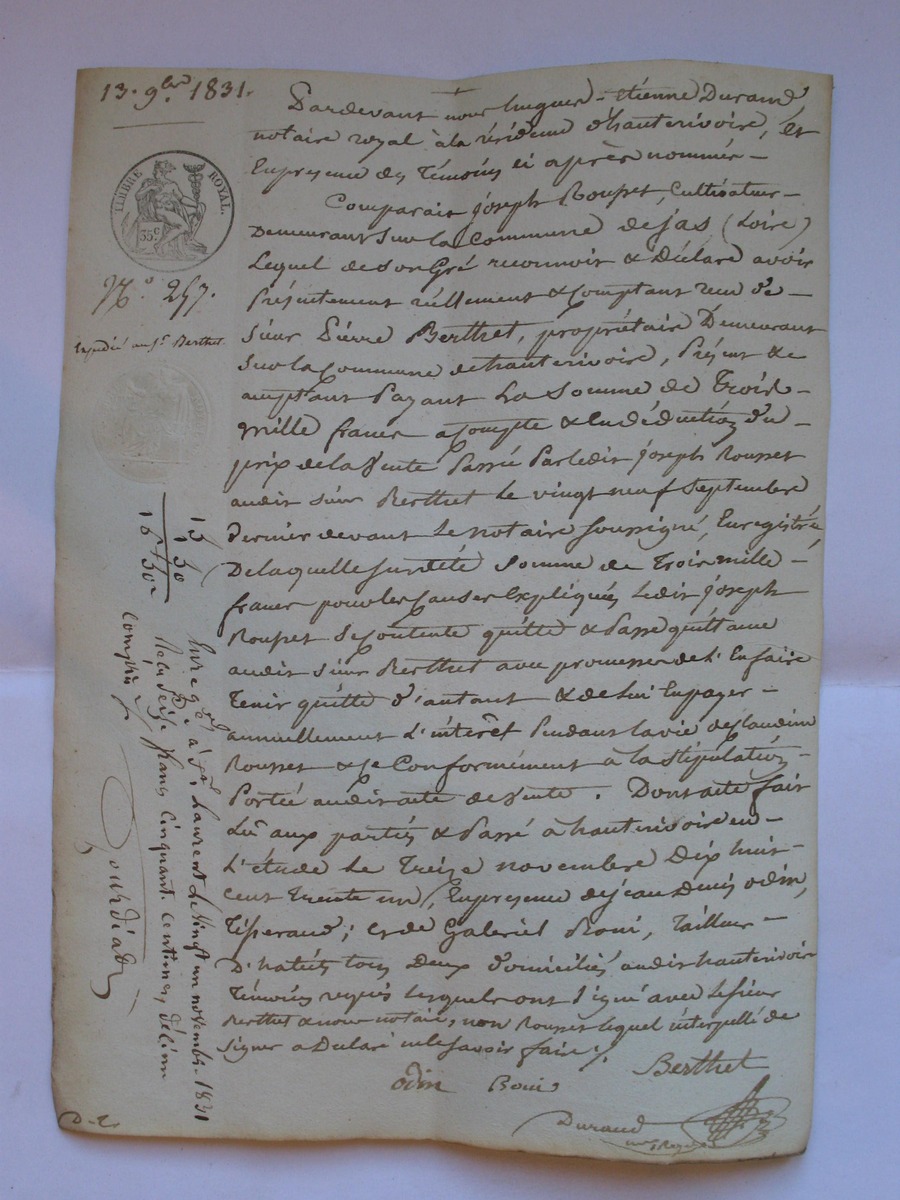 13. 9bre 1831.
TIMBRE ROYAL.
35 c
No. 257.
Expédié au Sr. Berthet.
Pardevant nous hugues-étienne Durand,
notaire royal à la résidence d'hauterivoire, et
En presence des Témoins ci après nommés –
Comparait joseph Rousset, Cultivateur –
Demeurant sur la Commune de jas (Loire)
Lequel de son Gré reconnoit & Déclare avoir
Présentement réellement & comptant reçu de –
sieur Pierre Berthet, propriétaire Demeurant
sur la Commune de hauterivoire, Présent &
acceptant Payant La somme de Trois –
mille francs acompte & en déduction du –
prix de la Vente Passée Par ledit joseph Rousset
audit sieur Berthet le vingt neuf septembre
dernier devant le notaire soussigné, Enregistrée
De laquelle susditte somme de Trois mille –
francs pour les causes Expliquées ledit joseph
Rousset se contente quitte & Passe quittance
audit sieur Berthet avec promesse de l'En faire
Tenir quitte d'autant & de lui En payer –
annuellement L'intérêt Pendant la vie de Claudine
Rousset & ce Conformément à la stipulation
Portée audit acte de Vente. Dont acte fait
Lu aux parties & Passé à hauterivoire en –
L'étude Le Treize novembre Dix huit –
cent Trente un, En presence de jean Denis odin,
Tisserand; et de Gabriel Boni, Tailleur –
D'habits tous Deux domiciliés audit hauterivoire
Témoins requis lesquels ont signé avec le sieur
Berthet & nous notaire, non Rousset lequel interpellé de
signer a Declaré ne le savoir faire /.
Berthet
odin Boni
Durand
15
1 50
16 50
Enregé. à St. Laurent Le Vingt un novembre 1831
Reçu Seize francs Cinquante Centimes, décime
compris
D. L.